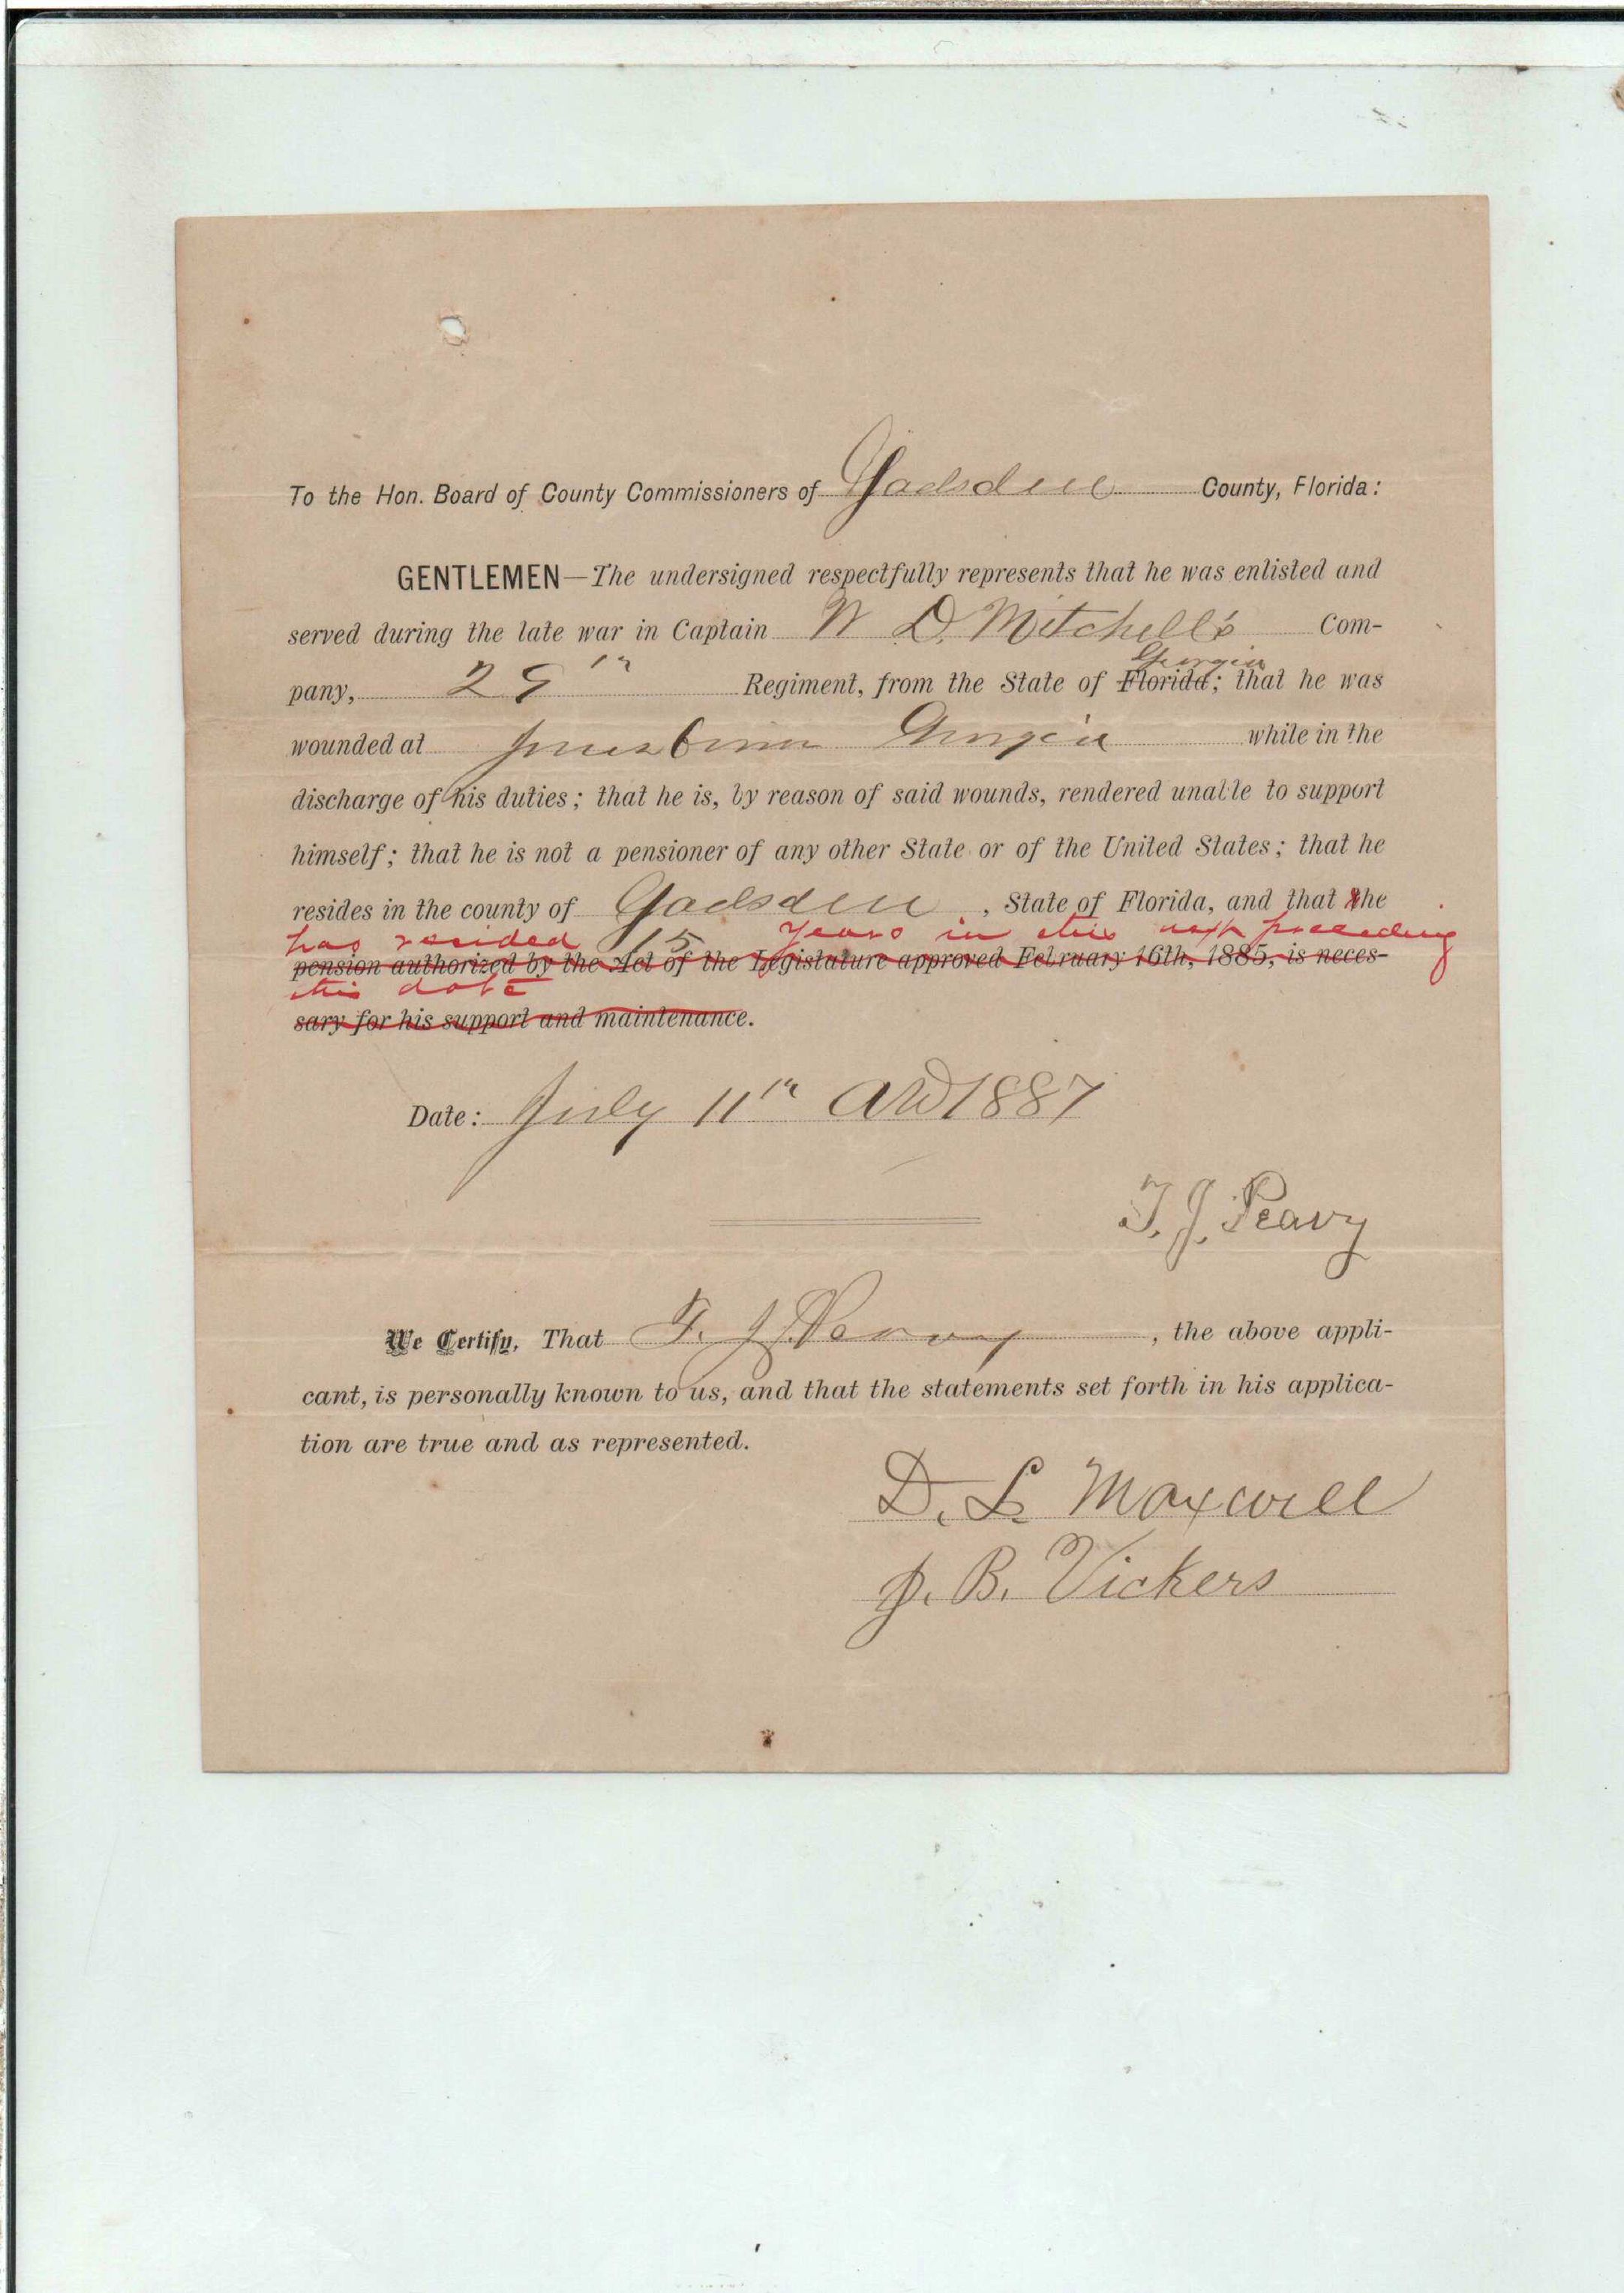 To the Hon. Board of County Commissioners of Gadsden County, Florida:
GENTLEMEN—The undersigned respectfully represents that he was enlisted and
served during the late war in Captain W D. Mitchell's Com-
Georgia
pany, 29th Regiment, from the State of Florida; that he was
wounded at Jonesboro Georgia while in the
discharge of his duties; that he is, by reason of said wounds, rendered unable to support
himself; that he is not a pensioner of any other State or of the United States; that he
resides in the county of Gadsden, State of Florida, and that the
has resided 15 years in this next preceding
pension authorized by the Act of the Legislature approved February 16th, 1885, is neces-
this date
sary for his support and maintenance.
Date: July 11th AD 1887
T. J. Peavy
We Certify, That T. J. Peavy, the above appli-
cant, is personally known to us, and that the statements set forth in his applica-
tion are true and as represented.
D. L. Maxwell
J. B. Vickers